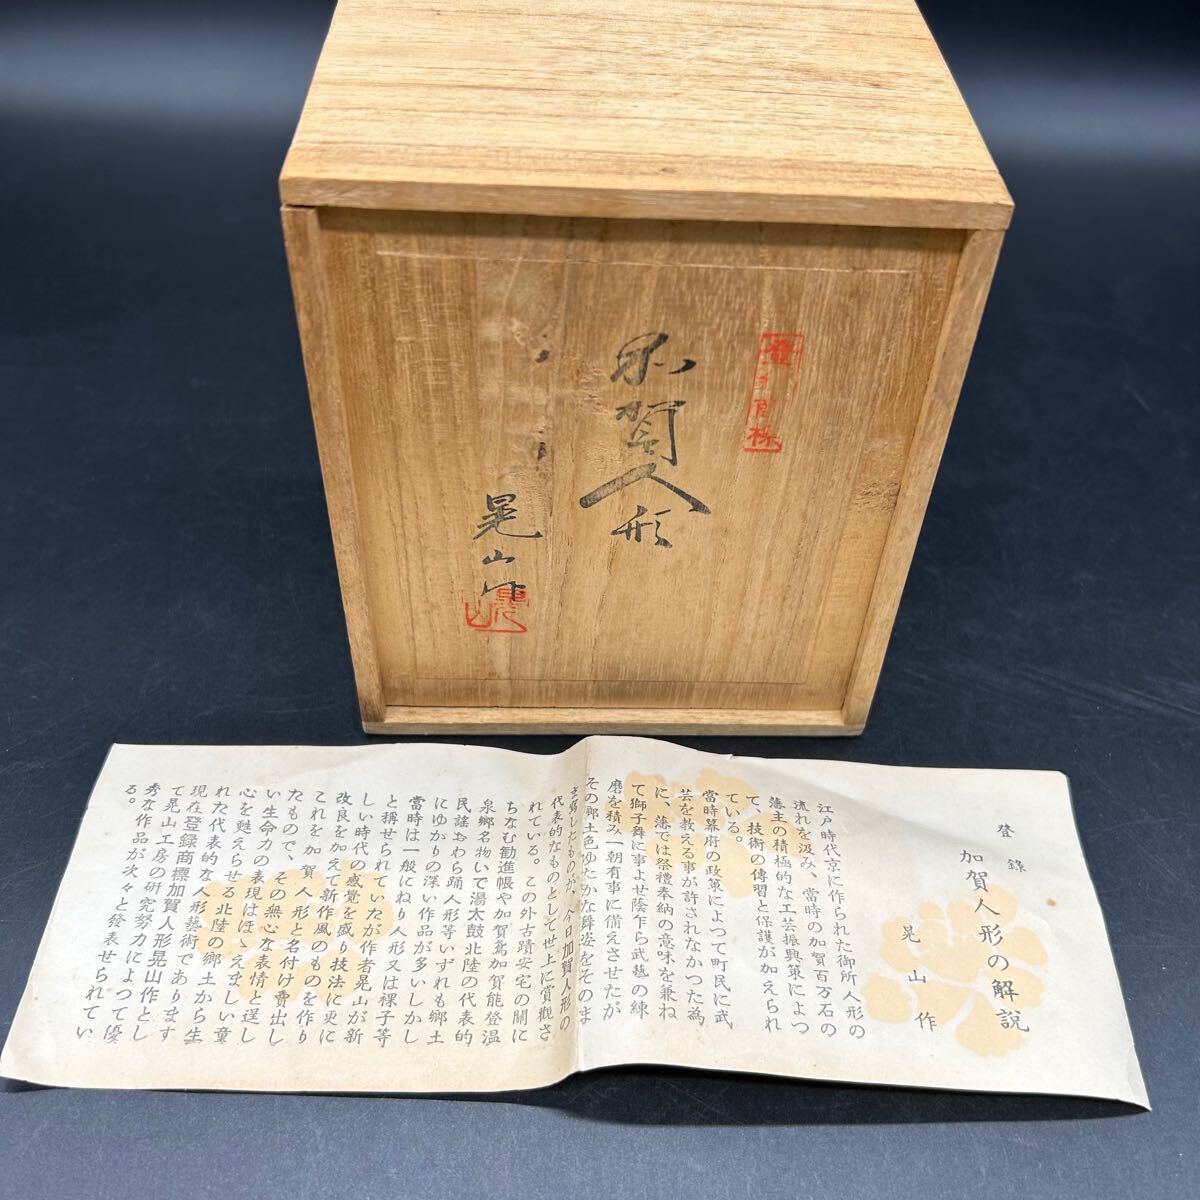 加賀人形
晃山作
登録
加賀人形の解説
晃山作
江戸時代京に作られた御所人形の
流れを汲み、當時の加賀百万石の
藩主の積極的な工芸振興策によつ
て、技術の傳習と保護が加えられ
ている。
當時幕府の政策によつて町民に武
芸を教える事が許されなかつた為
に、藩では祭禮奉納の意味を兼ね
て獅子舞に事よせ蔭乍ら武藝の練
磨を積み一朝有事に備えさせたが
その郷土色ゆたかな舞姿をそのま
ま寫したものが、今日加賀人形の
代表的なものとして世上に賞観さ
れている。この外古蹟安宅の關に
ちなむ勧進帳や加賀鳶加賀能登温
泉郷名物いで湯太鼓北陸の代表的
民謡おわら踊人形等いずれも郷土
にゆかりの深い作品が多いしかし
當時は一般にねり人形又は裸子等
と稱せられていたが作者晃山が新
しい時代の感覚を盛り技法に更に
改良を加えて新作風のものを作り
これを加賀人形と名付け賣出し
たもので、その無心な表情と逞し
い生命力の表現はほゝえましい童
心を甦えらせる北陸の郷土から生
れた代表的な人形藝術であります
現在登録商標加賀人形晃山作とし
て晃山工房の研究努力によつて優
秀な作品が次々と發表せられてい
る。